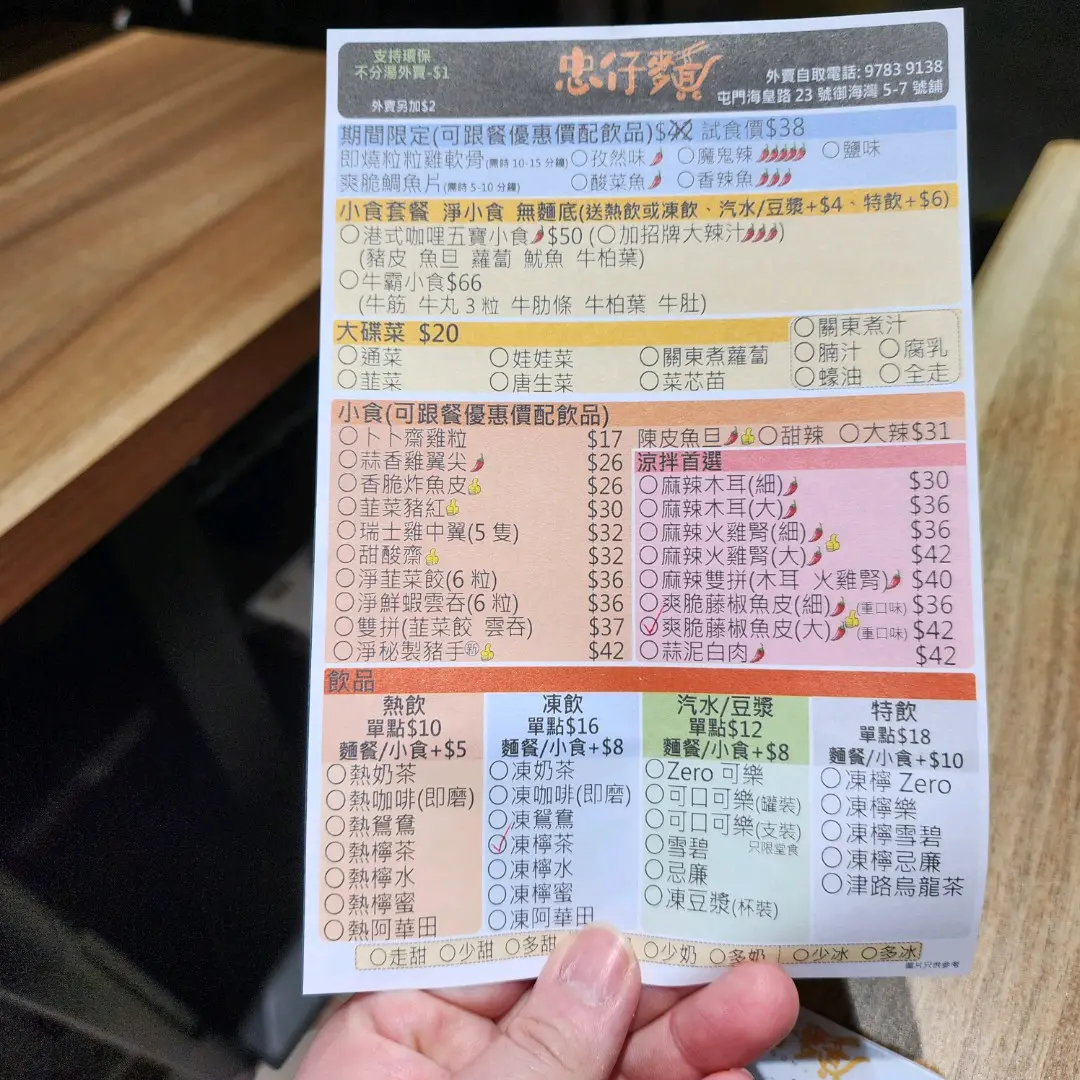 支持環保
不分湯外賣-$1
外賣另加$2
忠仔麥員
外賣自取電話: 9783 9138
屯門海皇路 23 號御海灣 5-7 號舖
期間限定(可跟餐優惠價配飲品)$42 試食價$38
即燒粒粒雞軟骨(需時 10-15 分鐘) 孜然味 魔鬼辣 鹽味
爽脆鯛魚片(需時 5-10 分鐘) 酸菜魚 香辣魚
小食套餐 淨小食 無麵底(送熱飲或凍飲、汽水/豆漿+$4、特飲+$6)
港式咖哩五寶小食 $50 (加招牌大辣汁)
(豬皮 魚旦 蘿蔔 魷魚 牛柏葉)
牛霸小食$66
(牛筋 牛丸 3 粒 牛肋條 牛柏葉 牛肚)
大碟菜 $20
通菜 娃娃菜 關東煮蘿蔔
韮菜 唐生菜 菜芯苗
關東煮汁
腩汁 腐乳
蠔油 全走
小食(可跟餐優惠價配飲品)
卜卜齋雞粒 $17
蒜香雞翼尖 $26
香脆炸魚皮 $26
韮菜豬紅 $30
瑞士雞中翼(5 隻) $32
甜酸齋 $32
淨韮菜餃(6 粒) $36
淨鮮蝦雲吞(6 粒) $36
雙拼(韮菜餃 雲吞) $37
淨秘製豬手 新 $42
陳皮魚旦 甜辣 大辣 $31
涼拌首選
麻辣木耳(細) $30
麻辣木耳(大) $36
麻辣火雞腎(細) $36
麻辣火雞腎(大) $42
麻辣雙拼(木耳 火雞腎) $40
爽脆藤椒魚皮(細) (重口味) $36
爽脆藤椒魚皮(大) (重口味) $42
蒜泥白肉 $42
飲品
熱飲
單點$10
麵餐/小食+$5
熱奶茶
熱咖啡(即磨)
熱鴛鴦
熱檸茶
熱檸水
熱檸蜜
熱阿華田
凍飲
單點$16
麵餐/小食+$8
凍奶茶
凍咖啡(即磨)
凍鴛鴦
凍檸茶
凍檸水
凍檸蜜
凍阿華田
汽水/豆漿
單點$12
麵餐/小食+$8
Zero 可樂
可口可樂(罐裝)
可口可樂(支裝)
只限堂食
雪碧
忌廉
凍豆漿(杯裝)
特飲
單點$18
麵餐/小食+$10
凍檸 Zero
凍檸樂
凍檸雪碧
凍檸忌廉
津路烏龍茶
走甜 少甜 多甜 少奶 多奶 少冰 多冰
圖片只供參考